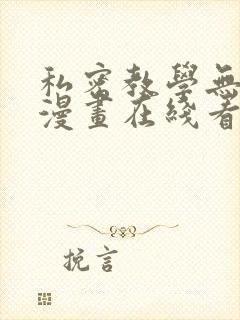 私密教學無
漫畫在綫看
挽言